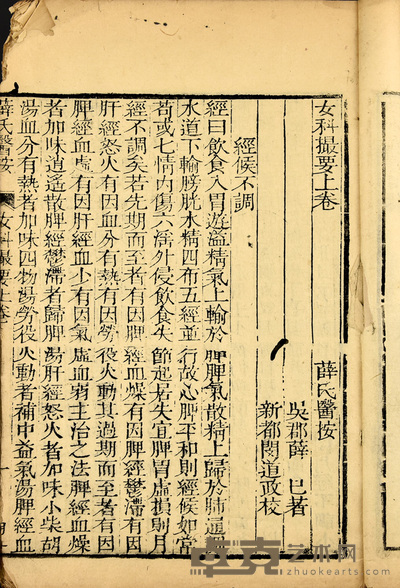 女科撮要上卷
薛氏醫按
吳郡薛 巳著
新都閔道政校
經候不調
經曰飲食入胃遊溢精氣上輸於脾脾氣散精上歸於肺通調
水道下輸膀胱水精四布五經並行故心脾平和則經候如常
苟或七情內傷六淫外侵飲食失節起居失宜脾胃虛損則月
經不調矣若先期而至者有因脾經血燥有因脾經鬱滯有因
肝經怒火有因血分有熱有因勞役火動其過期而至者有因
脾經血虛有因肝經血少有因氣虛血弱主治之法脾經血燥
者加味逍遙散脾經鬱滯者歸脾湯肝經怒火者加味小柴胡
湯血分有熱者加味四物湯勞役火動者補中益氣湯脾經血
薛氏醫按
女科撮要上卷
一
卓克艺术网
www.zhuokearts.com